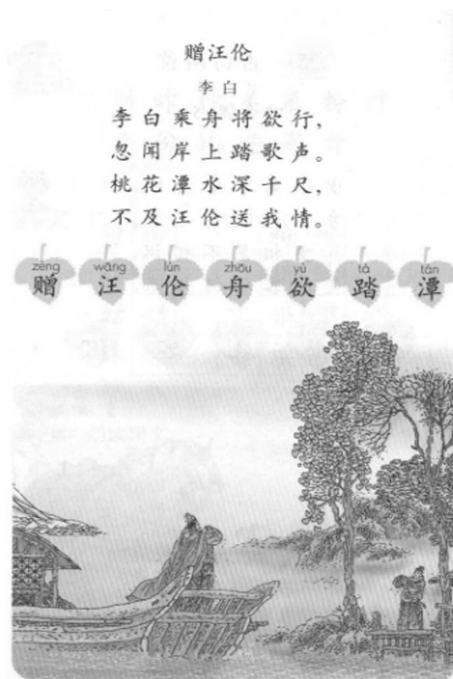 赠汪伦
李白
李白乘舟将欲行，
忽闻岸上踏歌声。
桃花潭水深千尺，
不及汪伦送我情。
zèng wāng lún zhōu yù tà tán
赠 汪 伦 舟 欲 踏 潭